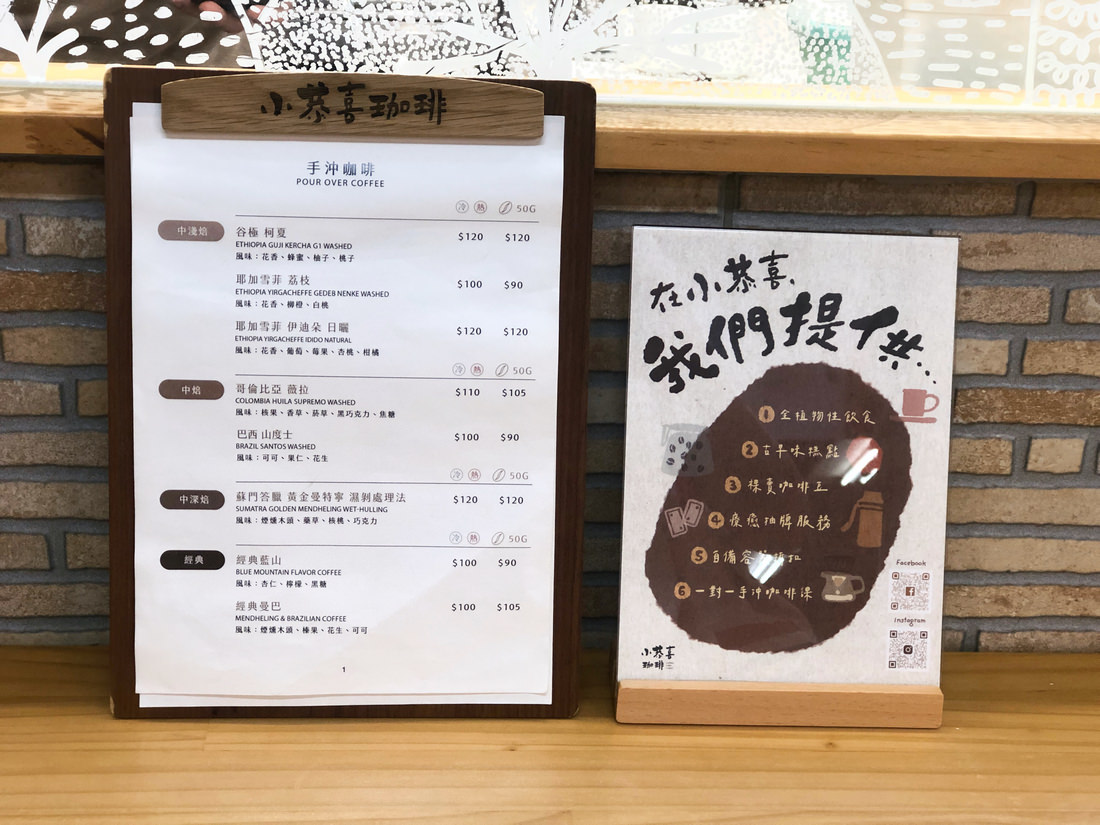 小恭喜珈琲
手沖咖啡
POUR OVER COFFEE
冷 熱 50G
中淺焙
谷極 柯夏 $120 $120
ETHIOPIA GUJI KERCHA G1 WASHED
風味：花香、蜂蜜、柚子、桃子
耶加雪菲 荔枝 $100 $90
ETHIOPIA YIRGACHEFFE GEDEB NENKE WASHED
風味：花香、柳橙、白桃
耶加雪菲 伊迪朵 日曬 $120 $120
ETHIOPIA YIRGACHEFFE IDIDO NATURAL
風味：花香、葡萄、莓果、杏桃、柑橘
冷 熱 50G
中焙
哥倫比亞 薇拉 $110 $105
COLOMBIA HUILA SUPREMO WASHED
風味：核果、香草、菸草、黑巧克力、焦糖
巴西 山度士 $100 $90
BRAZIL SANTOS WASHED
風味：可可、果仁、花生
冷 熱 50G
中深焙
蘇門答臘 黃金曼特寧 濕剝處理法 $120 $120
SUMATRA GOLDEN MENDHELING WET-HULLING
風味：煙燻木頭、藥草、核桃、巧克力
冷 熱 50G
經典
經典藍山 $100 $90
BLUE MOUNTAIN FLAVOR COFFEE
風味：杏仁、檸檬、黑糖
經典曼巴 $100 $105
MENDHELING & BRAZILIAN COFFEE
風味：煙燻木頭、榛果、花生、可可
1
在小恭喜,
我們提供...
1 全植物性飲食
2 古早味糕點
3 裸賣咖啡豆
4 療癒抽牌服務
5 自備容
6 一對一手沖咖啡課
Facebook
Instagram
小恭喜
珈琲